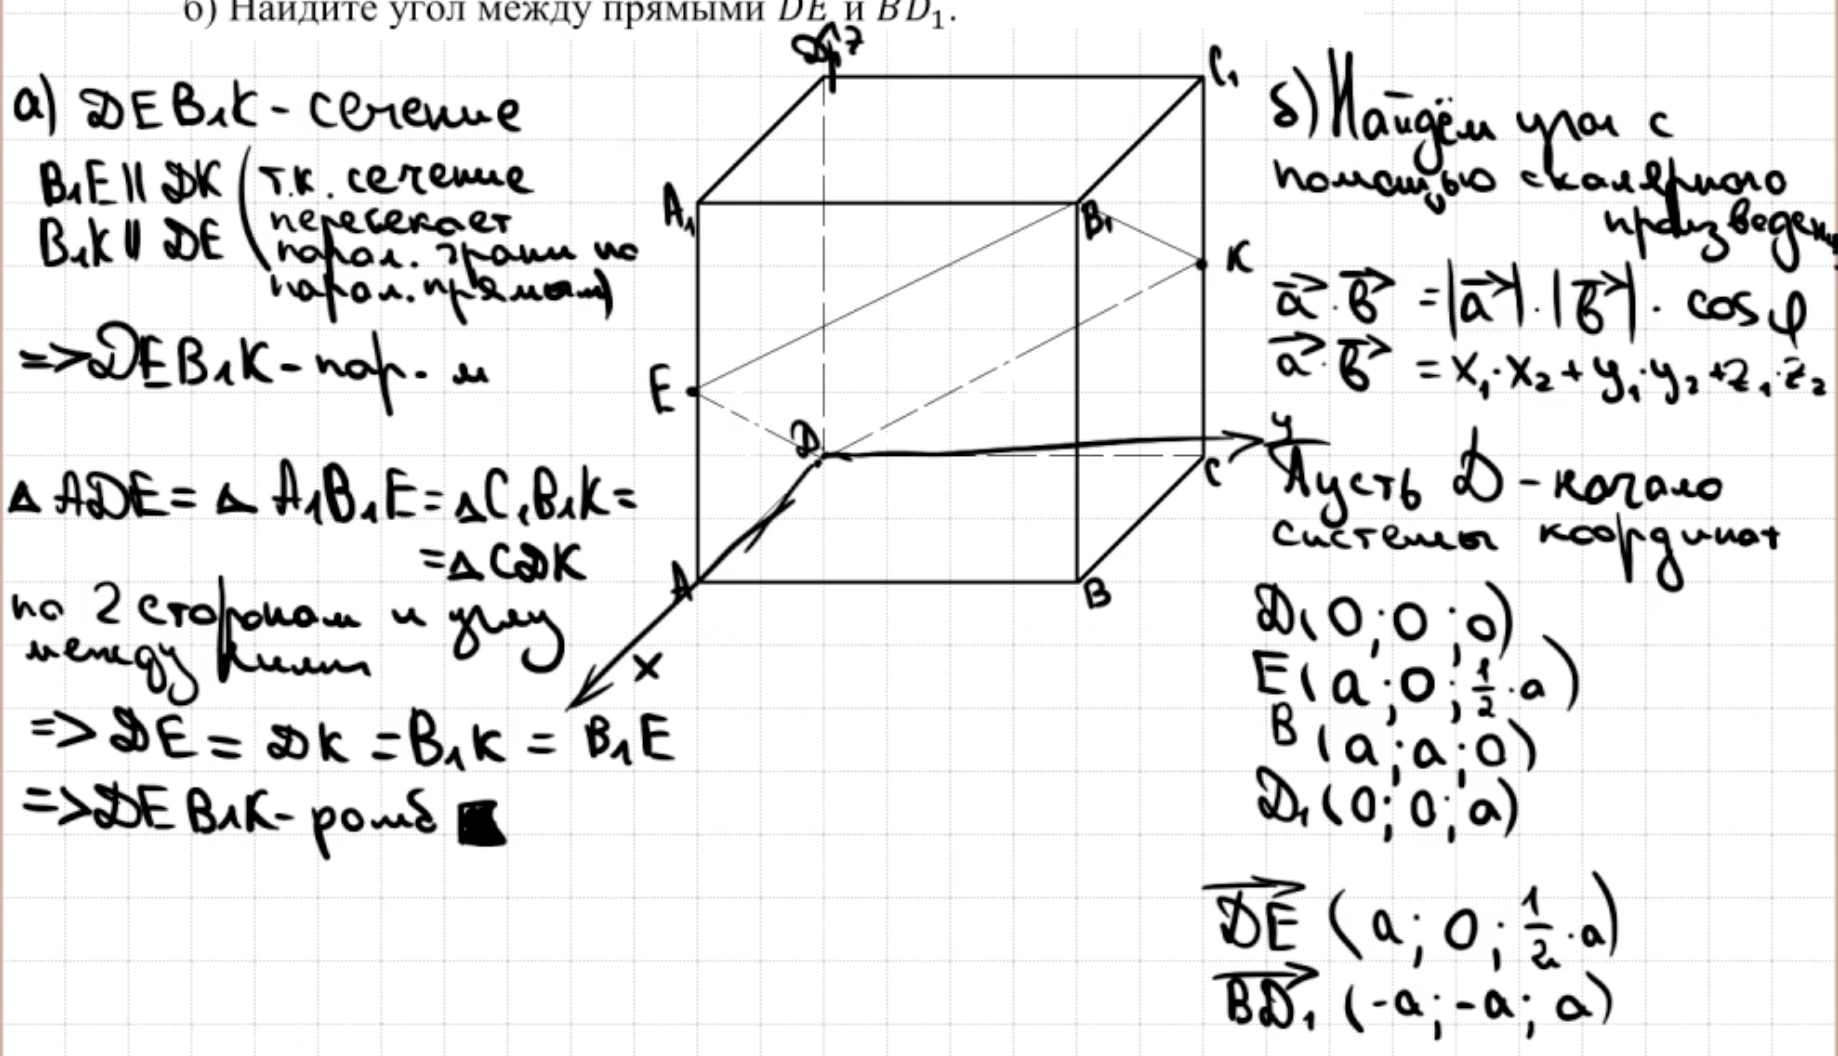 б) Найдите угол между прямыми DE и BD₁.
а) DEB₁K - сечение
B₁E || DK (т.к. сечение
B₁K || DE пересекает
парал. грани по
парал. прямым)
=> DEB₁K - пар-м
Δ ADE = Δ A₁B₁E = Δ C₁B₁K =
= Δ CDK
по 2 сторонам и углу
между ними
=> DE = DK = B₁K = B₁E
=> DEB₁K - ромб
D₁ z
C₁
A₁
B₁
K
E
D
y
C
A
B
x
б) Найдём угол с
помощью скалярного
произведен
a⃗ · b⃗ = |a⃗| · |b⃗| · cos φ
a⃗ · b⃗ = x₁·x₂ + y₁·y₂ + z₁·z₂
Пусть D - начало
системы координат
D(0; 0; 0)
E(a; 0; 1/2 · a)
B(a; a; 0)
D₁(0; 0; a)
DE⃗ (a; 0; 1/2 · a)
BD₁⃗ (-a; -a; a)